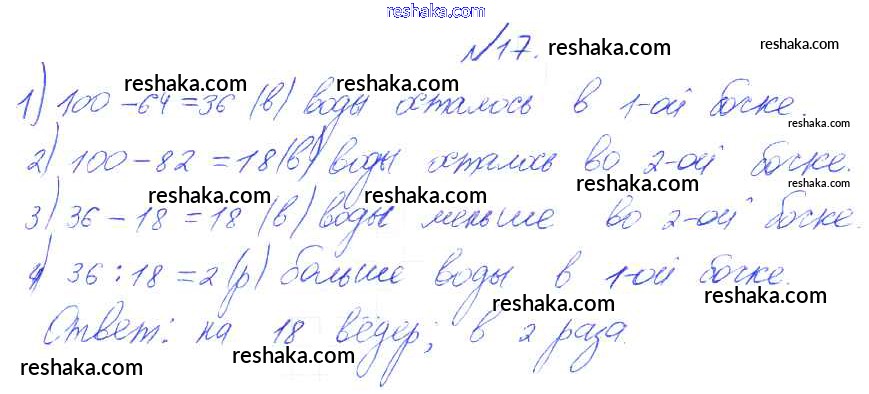 reshaka.com
№17. reshaka.com reshaka.com
1) 100 - 64 = 36 (в) воды осталось в 1-ой бочке.
reshaka.com reshaka.com reshaka.com reshaka.com
2) 100 - 82 = 18 (в) воды осталось во 2-ой бочке.
reshaka.com reshaka.com reshaka.com reshaka.com
3) 36 - 18 = 18 (в) воды меньше во 2-ой бочке.
reshaka.com reshaka.com reshaka.com
4) 36 : 18 = 2 (р) больше воды в 1-ой бочке.
reshaka.com reshaka.com
Ответ: на 18 вёдер; в 2 раза.
reshaka.com reshaka.com reshaka.com